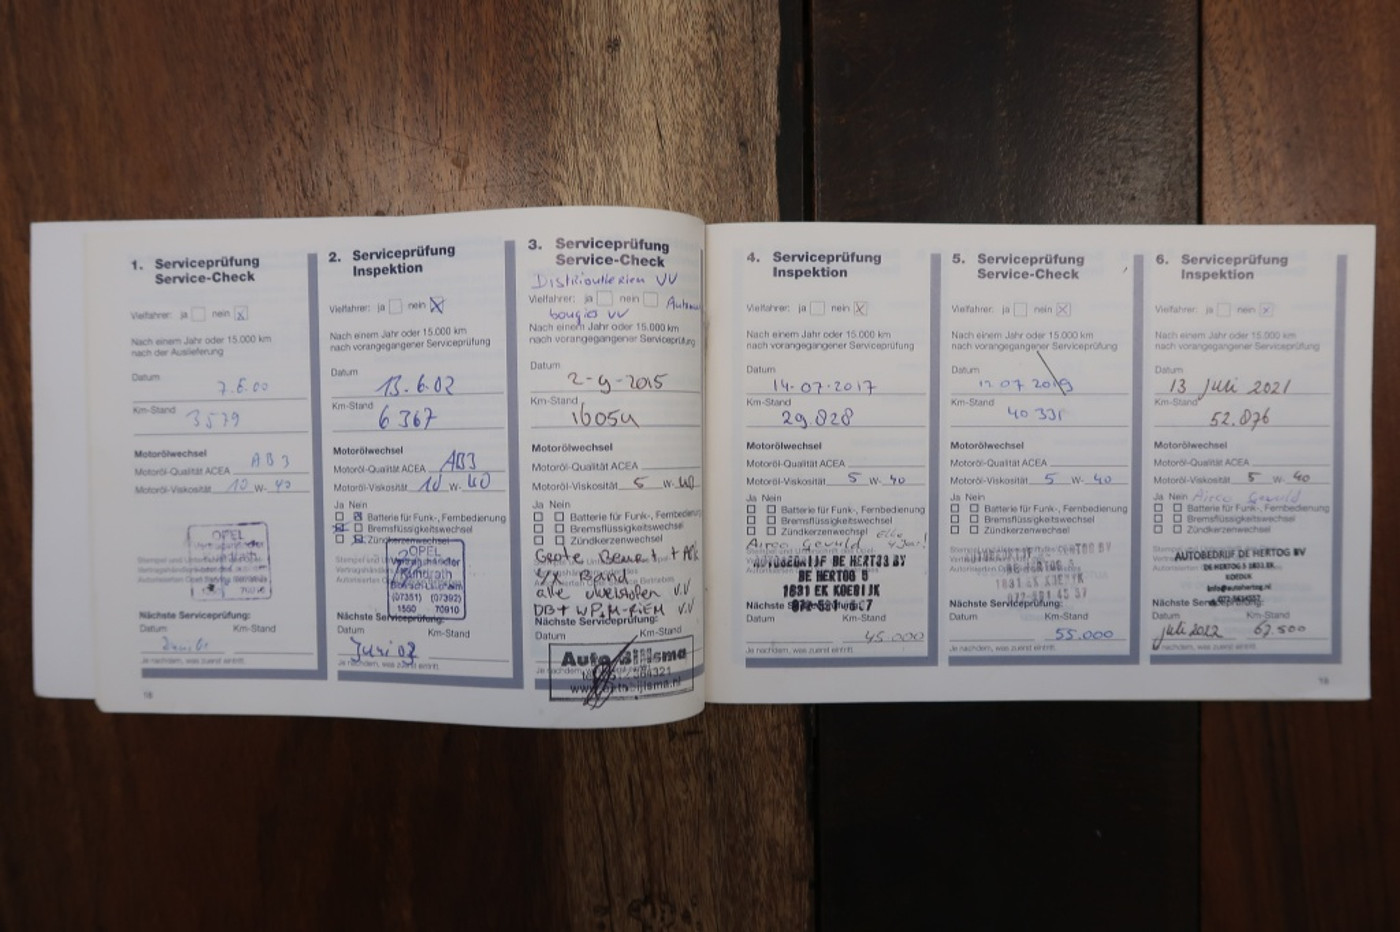 1. Serviceprüfung
Service-Check
Vielfahrer: ja nein x
Nach einem Jahr oder 15.000 km
nach der Auslieferung
Datum
7.6.00
Km-Stand
3579
Motorölwechsel
Motoröl-Qualität ACEA AB3
Motoröl-Viskosität 10 W- 40
OPEL
Nächste Serviceprüfung:
Datum Km-Stand
Juni 01
Je nachdem, was zuerst eintritt.
18
2. Serviceprüfung
Inspektion
Vielfahrer: ja nein X
Nach einem Jahr oder 15.000 km
nach vorangegangener Serviceprüfung
Datum
13.6.02
Km-Stand
6367
Motorölwechsel
Motoröl-Qualität ACEA AB3
Motoröl-Viskosität 10 W- 40
Ja Nein
Batterie für Funk-, Fernbedienung
Bremsflüssigkeitswechsel
Zündkerzenwechsel
OPEL
Vertragshändler
(07351) (07392)
1560 70910
Nächste Serviceprüfung:
Datum Km-Stand
Juni 03
Je nachdem, was zuerst eintritt.
3. Serviceprüfung
Service-Check
Distributieriem VV
Vielfahrer: ja nein
bougies VV
Nach einem Jahr oder 15.000 km
nach vorangegangener Serviceprüfung
Datum
2-9-2015
Km-Stand
16054
Motorölwechsel
Motoröl-Qualität ACEA
Motoröl-Viskosität 5 W- 40
Ja Nein
Batterie für Funk-, Fernbedienung
Bremsflüssigkeitswechsel
Zündkerzenwechsel
Grote Beurt + APK
4x Band
alle vloeistoffen V.V
DB+ WP.M-RIEM V.V
Nächste Serviceprüfung:
Datum Km-Stand
Auto Bijlsma
www.autobijlsma.nl
4. Serviceprüfung
Inspektion
Vielfahrer: ja nein x
Nach einem Jahr oder 15.000 km
nach vorangegangener Serviceprüfung
Datum
14-07-2017
Km-Stand
29.828
Motorölwechsel
Motoröl-Qualität ACEA
Motoröl-Viskosität 5 W- 40
Ja Nein
Batterie für Funk-, Fernbedienung
Bremsflüssigkeitswechsel
Zündkerzenwechsel
Airco Gevuld elke 4 Jaar!
AUTOBEDRIJF DE HERTOG BV
DE HERTOG 5
1831 EK KOEDIJK
Nächste Serviceprüfung:
Datum Km-Stand
45.000
Je nachdem, was zuerst eintritt.
5. Serviceprüfung
Service-Check
Vielfahrer: ja nein x
Nach einem Jahr oder 15.000 km
nach vorangegangener Serviceprüfung
Datum
07 2019
Km-Stand
40 331
Motorölwechsel
Motoröl-Qualität ACEA
Motoröl-Viskosität 5 W- 40
Ja Nein
Batterie für Funk-, Fernbedienung
Bremsflüssigkeitswechsel
Zündkerzenwechsel
AUTOBEDRIJF DE HERTOG BV
DE HERTOG 5
1831 EK KOEDIJK
Nächste Serviceprüfung:
Datum Km-Stand
55.000
Je nachdem, was zuerst eintritt.
6. Serviceprüfung
Inspektion
Vielfahrer: ja nein x
Nach einem Jahr oder 15.000 km
nach vorangegangener Serviceprüfung
Datum
13 Juli 2021
Km-Stand
52.876
Motorölwechsel
Motoröl-Qualität ACEA
Motoröl-Viskosität 5 W- 40
Ja Nein Airco Gevuld
Batterie für Funk-, Fernbedienung
Bremsflüssigkeitswechsel
Zündkerzenwechsel
AUTOBEDRIJF DE HERTOG BV
DE HERTOG 5 1831 EK
KOEDIJK
info@autohertog.nl
Nächste Serviceprüfung:
Datum Km-Stand
juli 2022 67.500
Je nachdem, was zuerst eintritt.